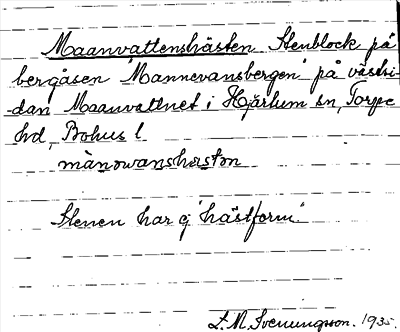 Maanvattenshästen Stenblock på
bergåsen "Mannevansbergen" på västsi-
dan Maanvattnet i Hjärtum sn, Torpe
hd, Bohus l
månowanshastan
Stenen har ej "hästform".
L. M. Svenungsson. 1935.